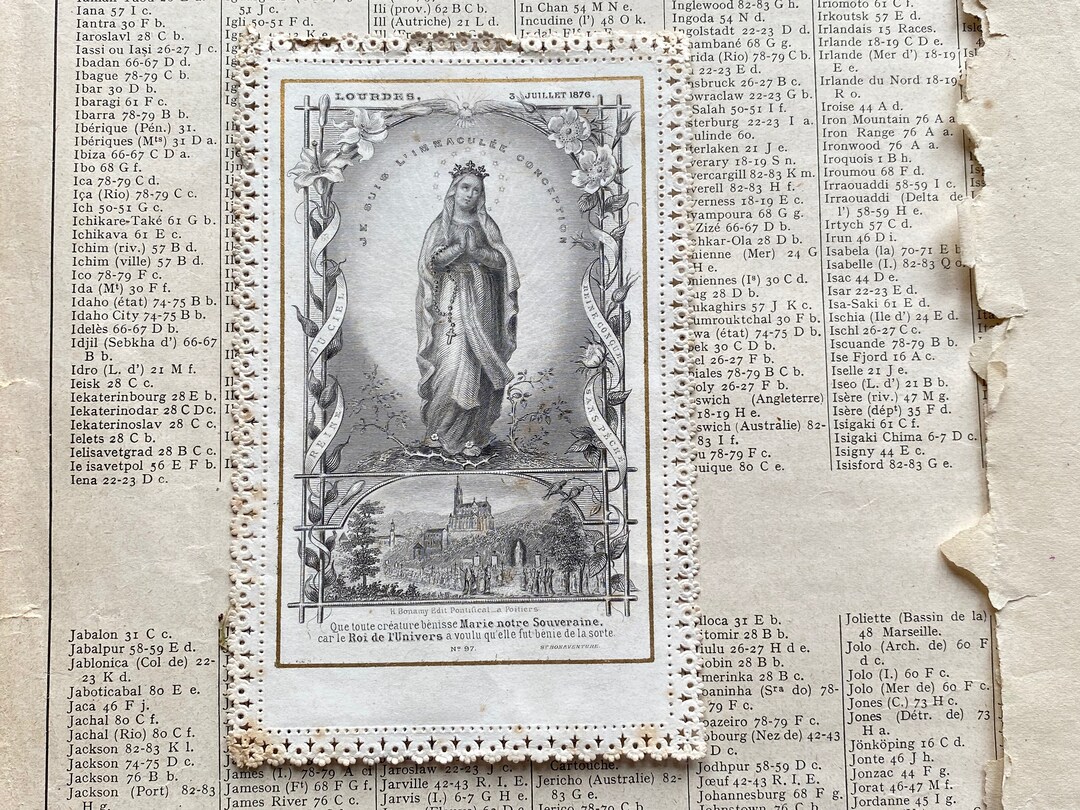 Iana 57 I c.
Iantra 30 F b.
Iaroslavl 28 C b.
Iassi ou Iaşi 26-27 J c.
Ibadan 66-67 D d.
Ibague 78-79 C b.
Ibar 30 D b.
Ibaragi 61 F c.
Ibarra 78-79 B b.
Ibérique (Pén.) 31.
Ibériques (Mts) 31 D a.
Ibiza 66-67 C D a.
Ibo 68 G f.
Ica 78-79 C d.
Iça (Rio) 78-79 C c.
Ich 50-51 G c.
Ichikare-Také 61 G b.
Ichikava 61 E c.
Ichim (riv.) 57 B d.
Ichim (ville) 57 B d.
Ico 78-79 F c.
Ida (Mt) 30 F f.
Idaho (état) 74-75 B b.
Idaho City 74-75 B b.
Idelès 66-67 D b.
Idjil (Sebkha d') 66-67
B b.
Idro (L. d') 21 M f.
Ieisk 28 C c.
Iekaterinbourg 28 E b.
Iekaterinodar 28 C D c.
Iekaterinoslav 28 C c.
Ielets 28 C b.
Ielisavetgrad 28 B C c.
Ie isavetpol 56 E F b.
Iena 22-23 D c.
Jabalon 31 C c.
Jabalpur 58-59 E d.
Jablonica (Col de) 22-
23 K d.
Jaboticabal 80 E e.
Jaca 46 F j.
Jachal 80 C f.
Jachal (Rio) 80 C f.
Jackson 82-83 K l.
Jackson 74-75 D c.
Jackson 76 B b.
Jackson (Port) 82-83
H g.
51 J c.
Igli 50-51 F d.
James (I.) 78-79 A
Jameson (Ft) 68 F G f.
James River 76 C c.
Ili (prov.) 62 B C b.
Ill (Autriche) 21 L d.
Jaroslaw 22-23 J c.
Jarvis 42-43 R, I, E.
Jarvis (I.) 6-7 G H e.
In Chan 54 M N e.
Incudine (l') 48 O k.
Cartouche.
Jericho (Australie) 82-
83 G e.
LOURDES.
3 JUILLET 1876.
JE SUIS L'IMMACULÉE CONCEPTION
REINE DU CIEL
REINE CONÇUE SANS PÉCHÉ
H. Bonamy Edit Pontifical _ a Poitiers.
Que toute créature bénisse Marie notre Souveraine,
car le Roi de l'Univers a voulu qu'elle fut bénie de la sorte.
No 97.
ST BONAVENTURE.
Inglewood 82-83 G h.
Ingoda 54 N d.
ngolstadt 22-23 D d.
hambané 68 G g.
rida (Rio) 78-79 C b.
22-23 E d.
nsbruck 26-27 B c.
owraclaw 22-23 G b.
Salah 50-51 I f.
sterburg 22-23 I a.
ulinde 60.
terlaken 21 J e.
verary 18-19 S n.
vercargill 82-83 K m.
verell 82-83 H f.
verness 18-19 E c.
yampoura 68 G g.
Zizé 66-67 D b.
chkar-Ola 28 D b.
nienne (Mer) 24 G
H e.
oniennes (Is) 30 C d.
ug 28 D b.
ukaghirs 57 J K c.
umrouktchal 30 F b.
wa (état) 74-75 D b.
pek 30 C D b.
el 26-27 F b.
piales 78-79 B C b.
poly 26-27 F b.
swich (Angleterre)
18-19 H e.
swich (Australie) 82-
83 I f.
u 78-79 F c.
quique 80 C e.
dloca 31 E b.
itomir 28 B b.
iulu 26-27 H d e.
obin 28 B b.
merinka 28 B c.
oaninha (Sra do) 78-
79 F c.
oazeiro 78-79 F c.
obourg (Nez de) 42-43
D c.
Jodhpur 58-59 D c.
Jœuf 42-43 R, I, E.
Johannesburg 68 F g.
Johnstown 76 C b.
Iriomoto 61 C f.
Irkoutsk 57 E d.
Irlandais 15 Races.
Irlande 18-19 C D e.
Irlande (Mer d') 18-19
E e.
Irlande du Nord 18-19
R o.
Iroise 44 A d.
Iron Mountain 76 A a
Iron Range 76 A a.
Ironwood 76 A a.
Iroquois 1 B h.
Iroumou 68 F d.
Irraouaddi 58-59 I c.
Irraouaddi (Delta de
l') 58-59 H e.
Irtych 57 C d.
Irun 46 D i.
Isabela (la) 70-71 E b
Isabelle (I.) 82-83 Q d.
Isac 44 D e.
Isar 22-23 E d.
Isa-Saki 61 E d.
Ischia (Ile d') 24 E d.
Ischl 26-27 C c.
Iscuande 78-79 B b.
Ise Fjord 16 A c.
Iselle 21 J e.
Iseo (L. d') 21 B b.
Isère (riv.) 47 M g.
Isère (dépt) 35 F d.
Isigaki 61 C f.
Isigaki Chima 6-7 D c.
Isigny 44 E c.
Isisford 82-83 G e.
Joliette (Bassin de la)
48 Marseille.
Jolo (Arch. de) 60 F
d c.
Jolo (I.) 60 F c.
Jolo (Mer de) 60 F c.
Jones (C.) 73 H c.
Jones (Détr. de) 73
H a.
Jönköping 16 C d.
Jonte 46 J h.
Jonzac 44 F g.
Jorat 46-47 M f.
Jordanne 45 I g.